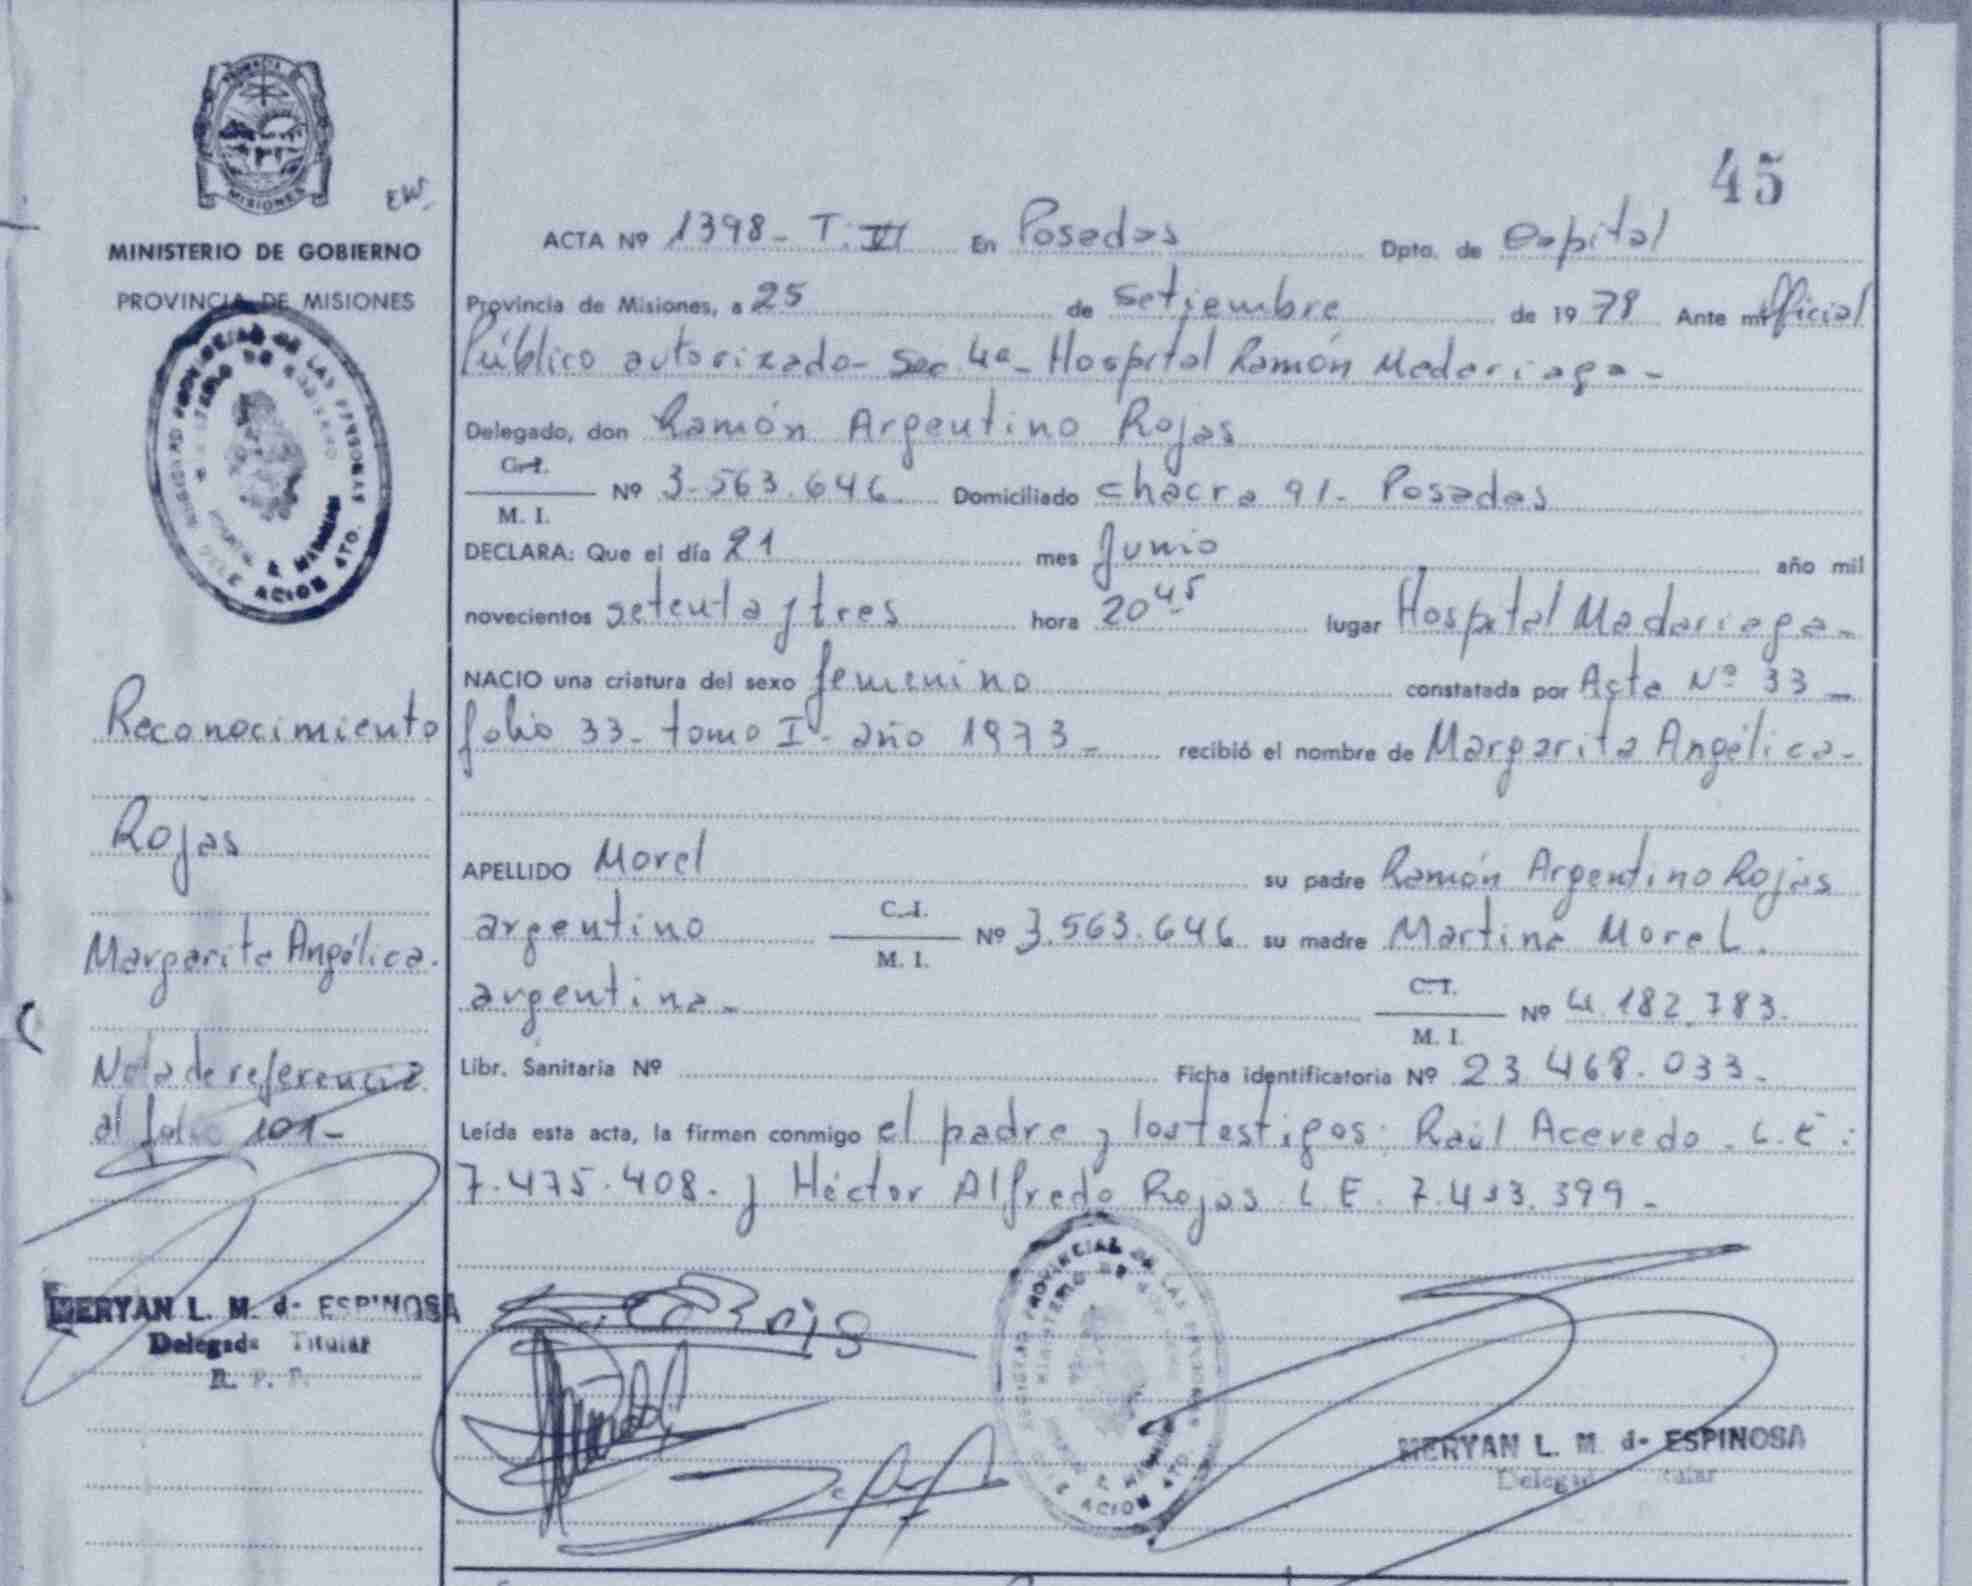 PROVINCIA DE
MISIONES
EW.
MINISTERIO DE GOBIERNO
PROVINCIA DE MISIONES
Reconocimiento
Rojas
Margarita Angélica.
Nota de referencia
al folio 101-
MERYAN L. M. de ESPINOSA
Delegada Titular
R. P. P.
45
ACTA Nº 1398- T. VI En Posadas Dpto. de Capital
Provincia de Misiones, a 25 de Setiembre de 1978 Ante mi Oficial
Público autorizado- Sec. 4a- Hospital Ramón Madariaga-
Delegado, don Ramón Argentino Rojas
C. I.
M. I. Nº 3.563.646 Domiciliado chacra 91- Posadas
DECLARA: Que el día 21 mes Junio año mil
novecientos setenta y tres hora 20 45 lugar Hospital Madariaga-
NACIO una criatura del sexo femenino constatada por Acta Nº 33-
folio 33- tomo I- año 1973- recibió el nombre de Margarita Angélica-
APELLIDO Morel su padre Ramón Argentino Rojas
argentino C. I. M. I. Nº 3.563.646 su madre Martina Morel.
argentina- C. I. M. I. Nº 4.182.783.
Libr. Sanitaria Nº Ficha identificatoria Nº 23.468.033-
Leída esta acta, la firman conmigo el padre y los testigos: Raúl Acevedo. L.E:
7.475.408. y Héctor Alfredo Rojas L.E.
MERYAN L. M. de ESPINOSA